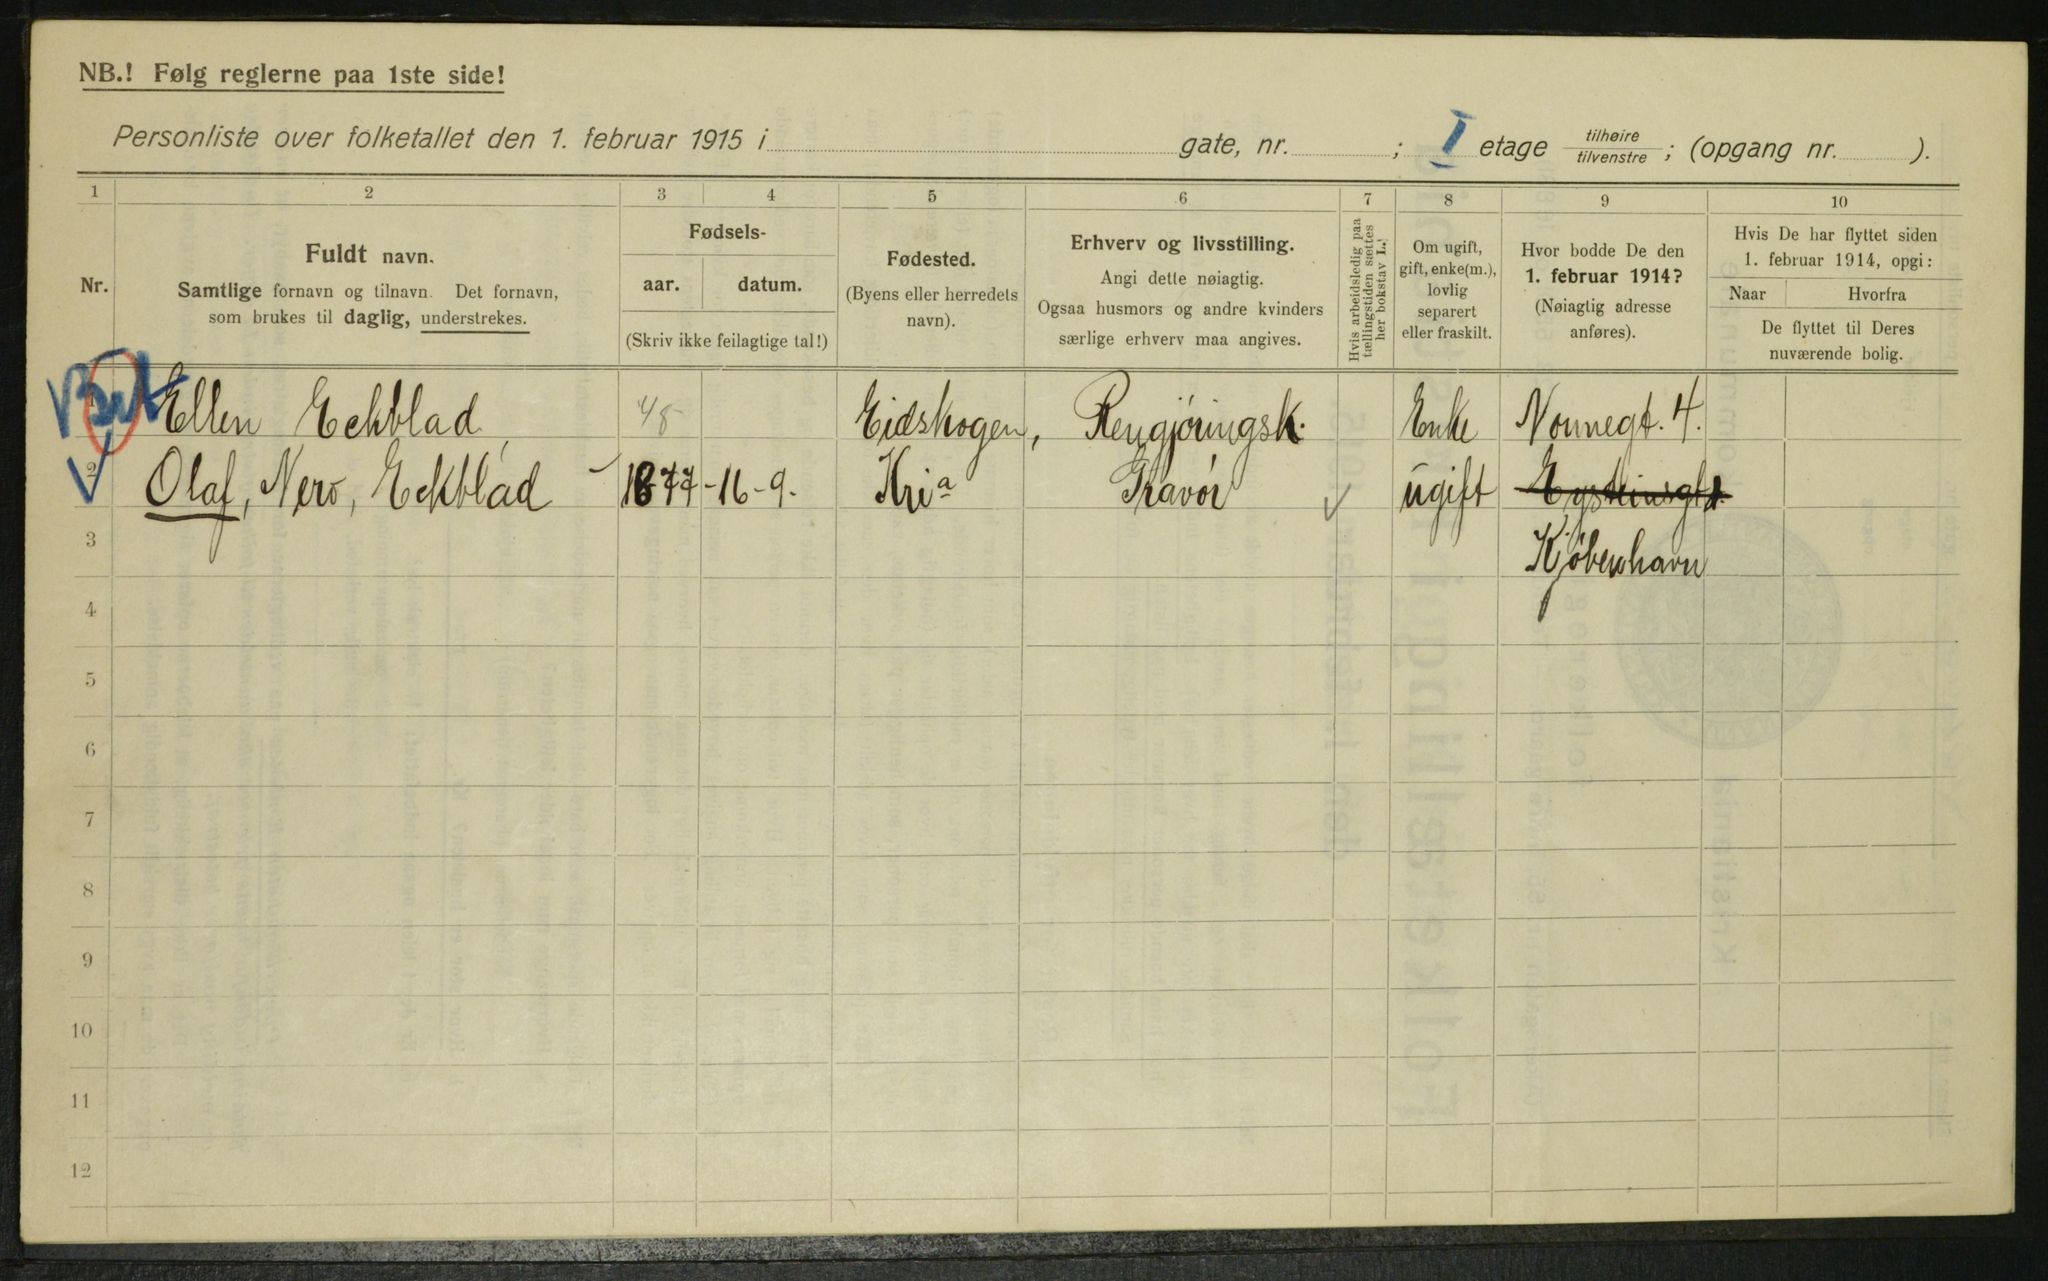 NB.! Følg reglerne paa 1ste side!
Personliste over folketallet den 1. februar 1915 i gate, nr. ; I etage tilhøire tilvenstre ; (opgang nr. ).
1 2 3 4 5 6 7 8 9 10
Nr.
Fuldt navn.
Samtlige fornavn og tilnavn. Det fornavn,
som brukes til daglig, understrekes.
Fødsels-
aar. datum.
(Skriv ikke feilagtige tal!)
Fødested.
(Byens eller herredets
navn).
Erhverv og livsstilling.
Angi dette nøiagtig.
Ogsaa husmors og andre kvinders
særlige erhverv maa angives.
Hvis arbeidsledig paa
tællingstiden sættes
her bokstav L.!
Om ugift,
gift, enke(m.),
lovlig
separert
eller fraskilt.
Hvor bodde De den
1. februar 1914?
(Nøiagtig adresse
anføres).
Hvis De har flyttet siden
1. februar 1914, opgi:
Naar Hvorfra
De flyttet til Deres
nuværende bolig.
1 Ellen Eckblad 48 Eidskogen, Rengjøringsk. Enke Nonnegt. 4.
2 Olaf, Nero, Eckblad 1877 - 16 - 9. Kria Gravør ugift Eysteinsgt 1.
3 Kjøbenhavn
4
5
6
7
8
9
10
11
12